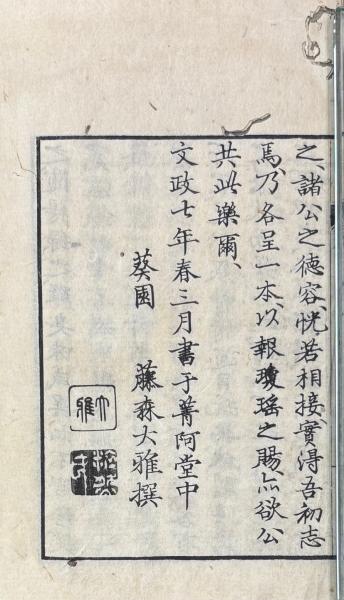 之、諸公之德容、恍若相接、實得吾初志
焉、乃各呈一本、以報瓊瑤之賜、亦欲公
共此樂爾、
文政七年春三月書于菁阿堂中
葵園 藤森大雅撰
大雅